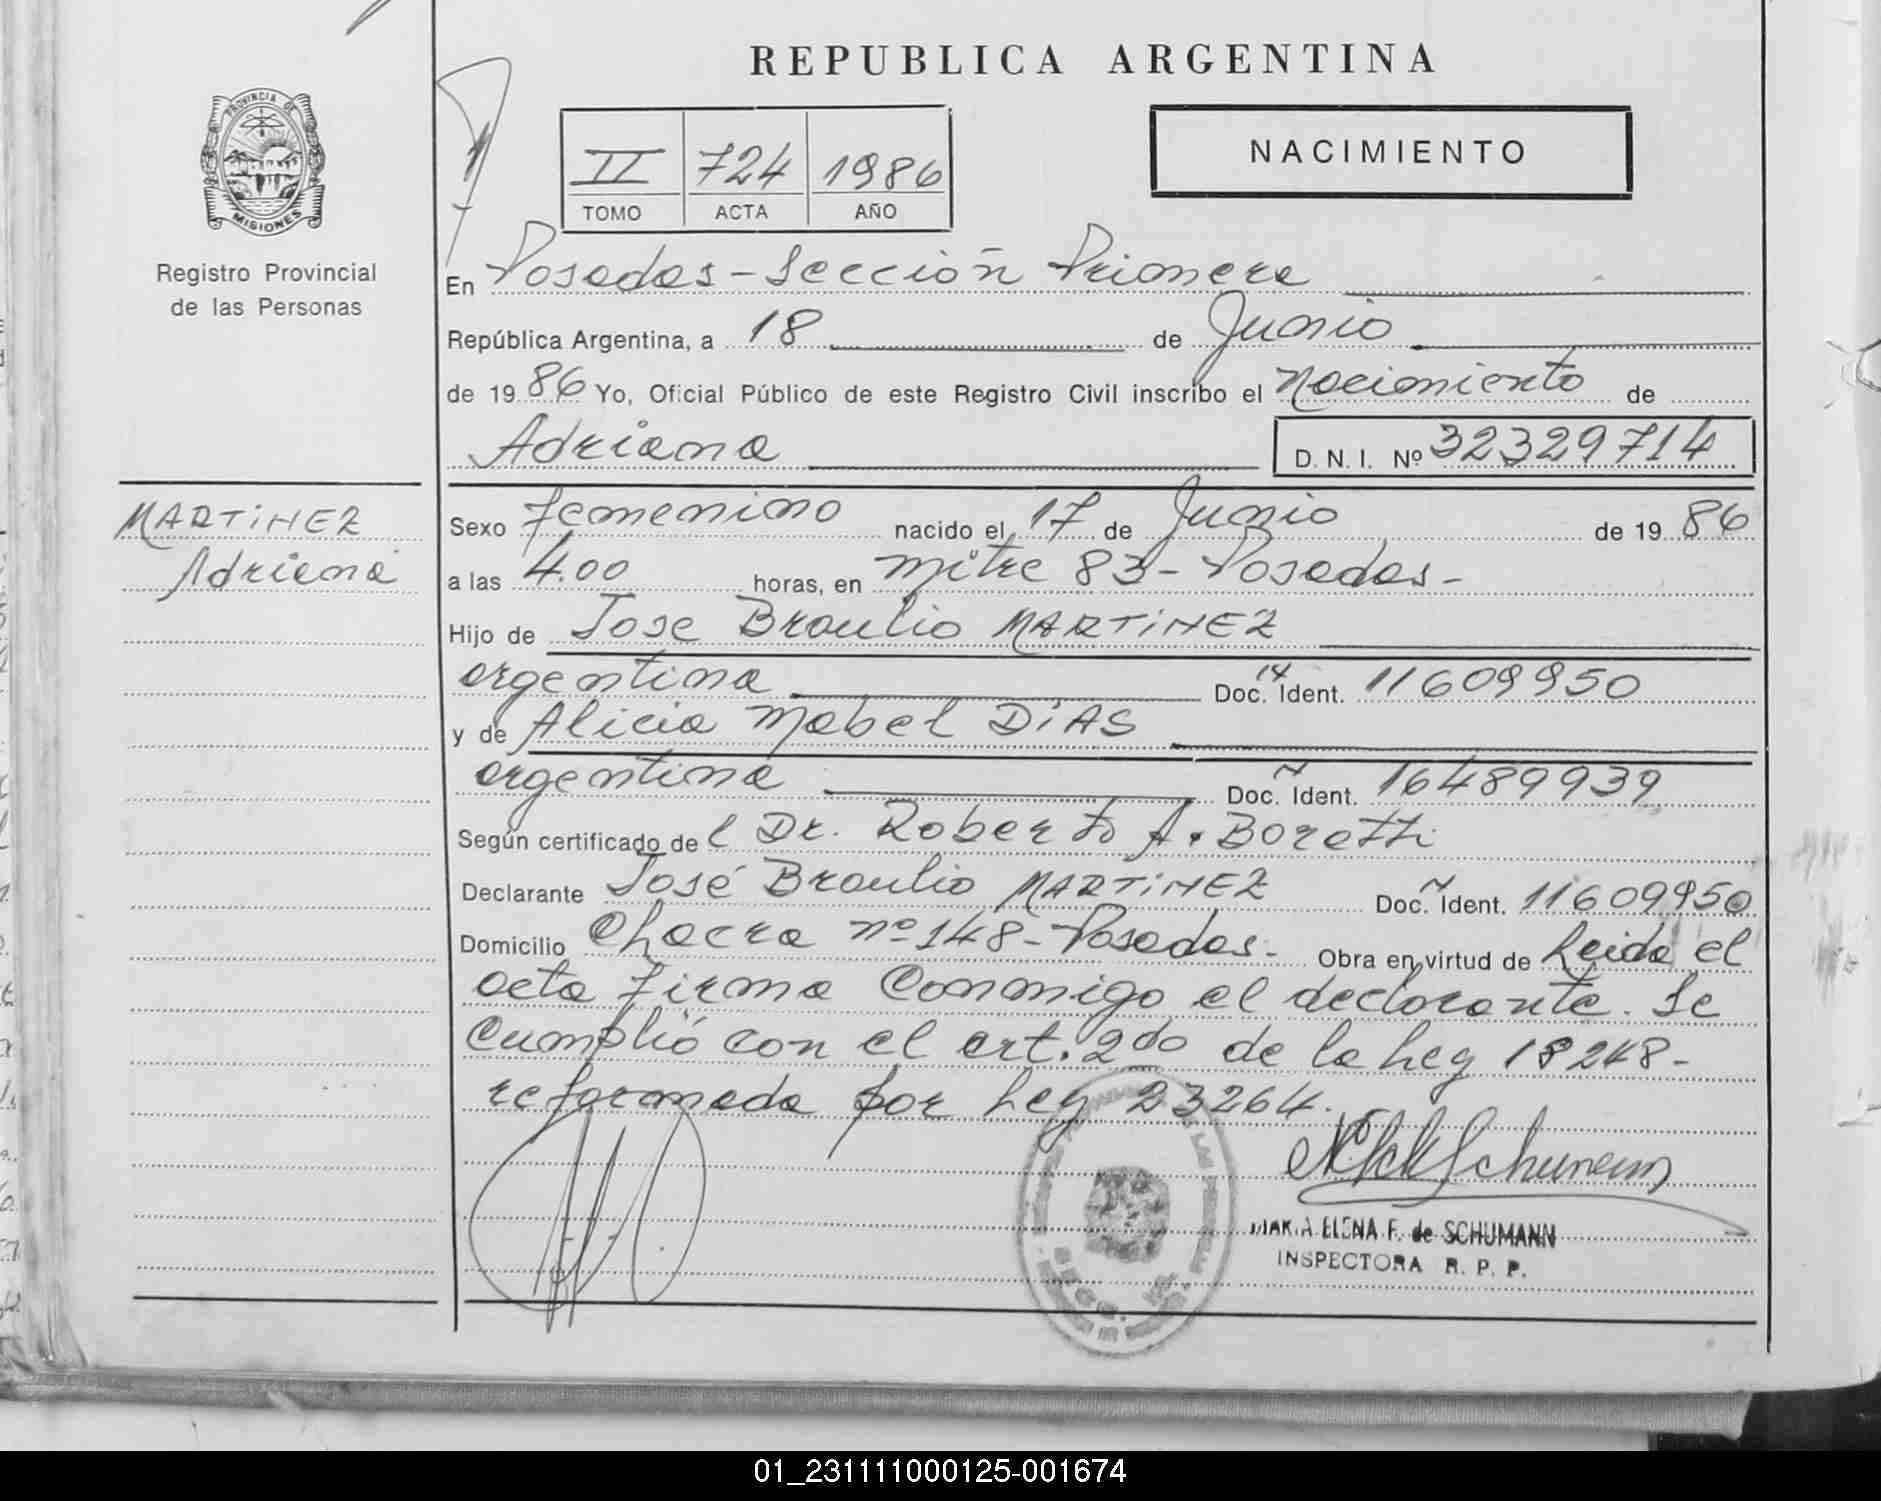 REPUBLICA ARGENTINA
PROVINCIA DE
MISIONES
Registro Provincial
de las Personas
II 724 1986
TOMO ACTA AÑO
NACIMIENTO
En Posadas - Sección Primera
República Argentina, a 18 de Junio
de 19 86 Yo, Oficial Público de este Registro Civil inscribo el Nacimiento de
Adriana D. N. I. Nº 32329714
MARTINEZ
Adriana
Sexo Femenino nacido el 17 de Junio de 19 86
a las 4.00 horas, en Mitre 83 - Posadas -
Hijo de Jose Braulio MARTINEZ
argentina Doc. Ident. 11609950
y de Alicia Mabel DIAS
argentina Doc. Ident. 16489939
Según certificado de l Dr. Roberto A. Boretti
Declarante José Braulio MARTINEZ Doc. Ident. 11609950
Domicilio Chacra nº 148 - Posadas - Obra en virtud de Leida el
acta firma Conmigo el declarante. Se
Cumplió con el art. 2do de la Ley 18248 -
reformada por Ley 23264.
MARIA ELENA F. de SCHUMANN
INSPECTORA R. P. P.
01_231111000125-001674